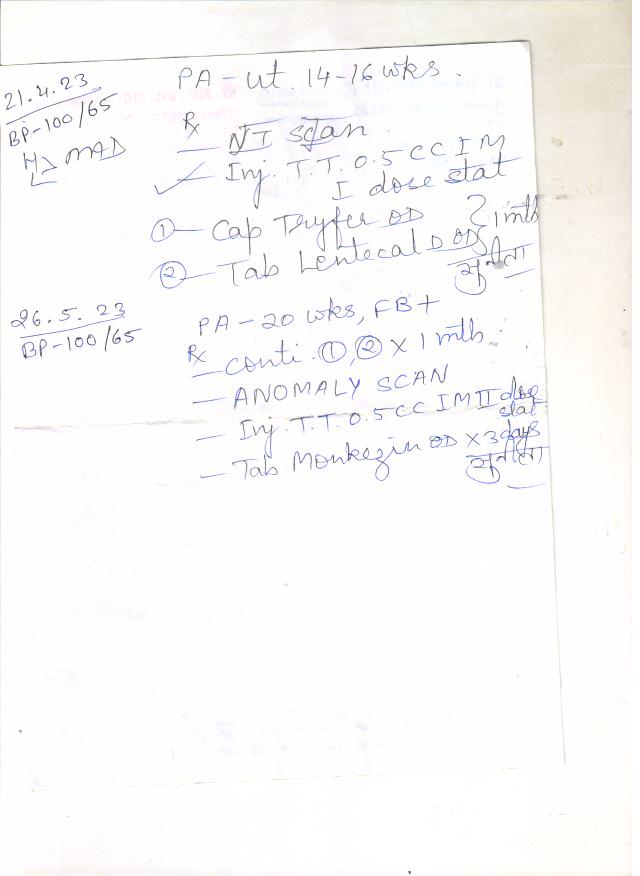 21.4.23
BP-100/65
PA - Ut 14-16 wks.
H/L NAD
Rx
— NT Scan
✓ — Inj. T.T. 0.5 CC IM
I dose stat
① — Cap Tryfer OD } 1 mth
② — Tab Lentecal D OD
सुनीता
26.5.23
BP-100/65
PA - 20 wks, FB+
Rx
— Conti. ①, ② X 1 mth.
— ANOMALY SCAN
— Inj. T.T. 0.5 CC IM II dose
stat
— Tab Monkezin OD X 3 days
सुनीता